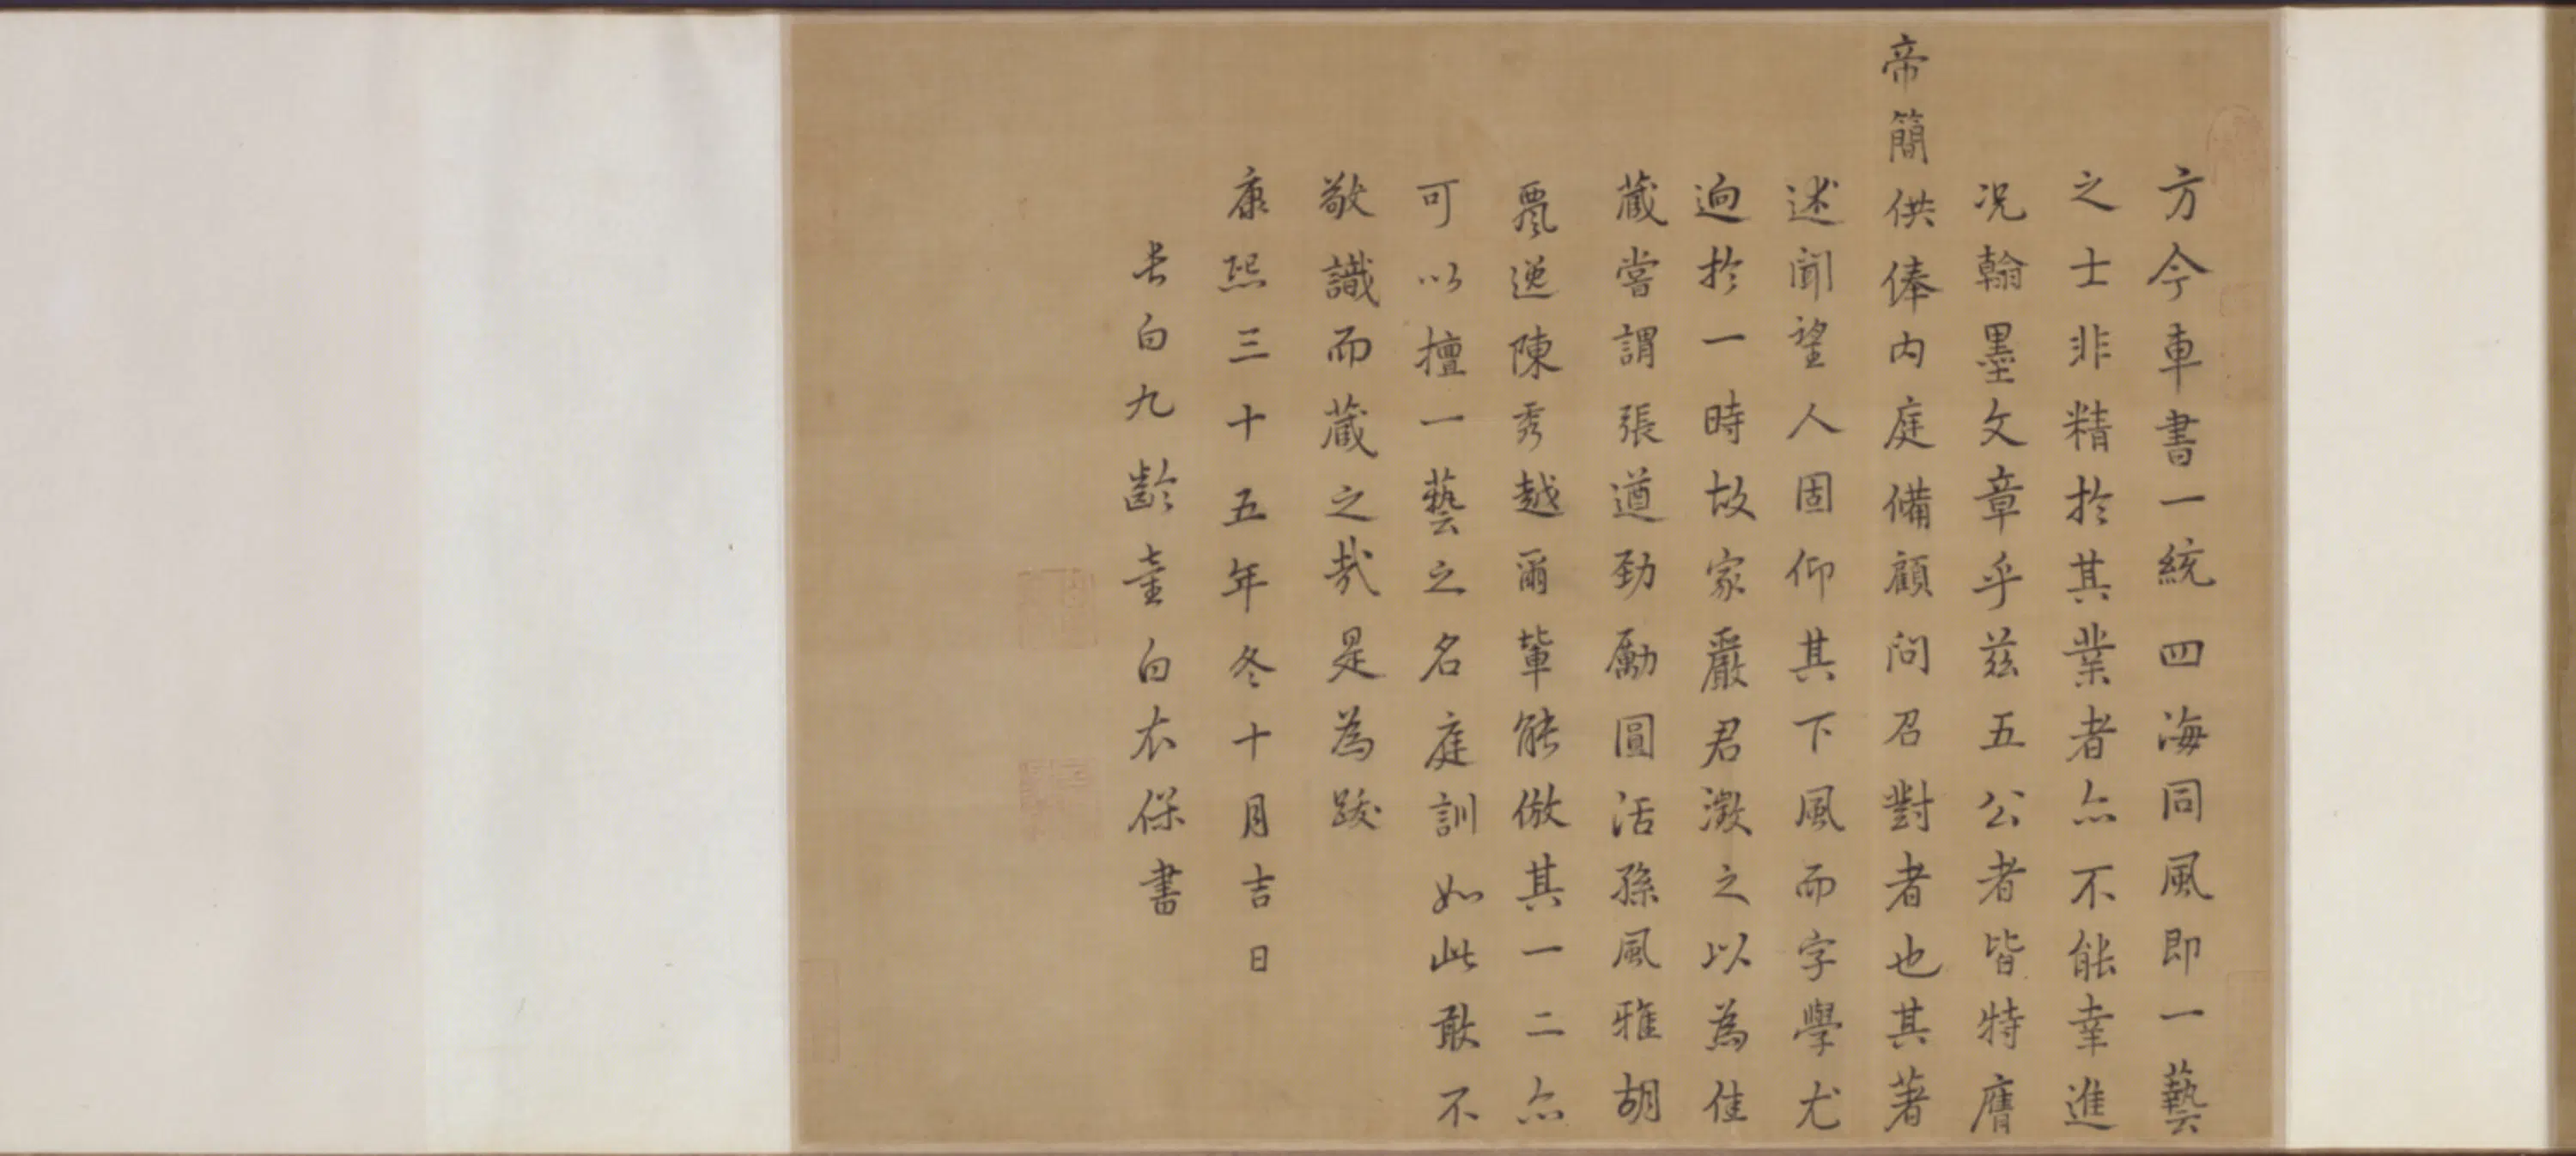 方今車書一統四海同風即一藝
之士非精於其業者亦不能幸進
况翰墨文章乎茲五公者皆特膺
帝簡供俸内庭備顧問召對者也其著
述聞望人固仰其下風而字學尤
逈於一時故家嚴君澂之以為佳
藏嘗謂張遒勁勵圓活孫風雅胡
飄逸陳秀越爾輩能倣其一二亦
可以擅一藝之名庭訓如此敢不
敬識而藏之哉是為跋
康熙三十五年冬十月吉日
長白九齡童白衣保書